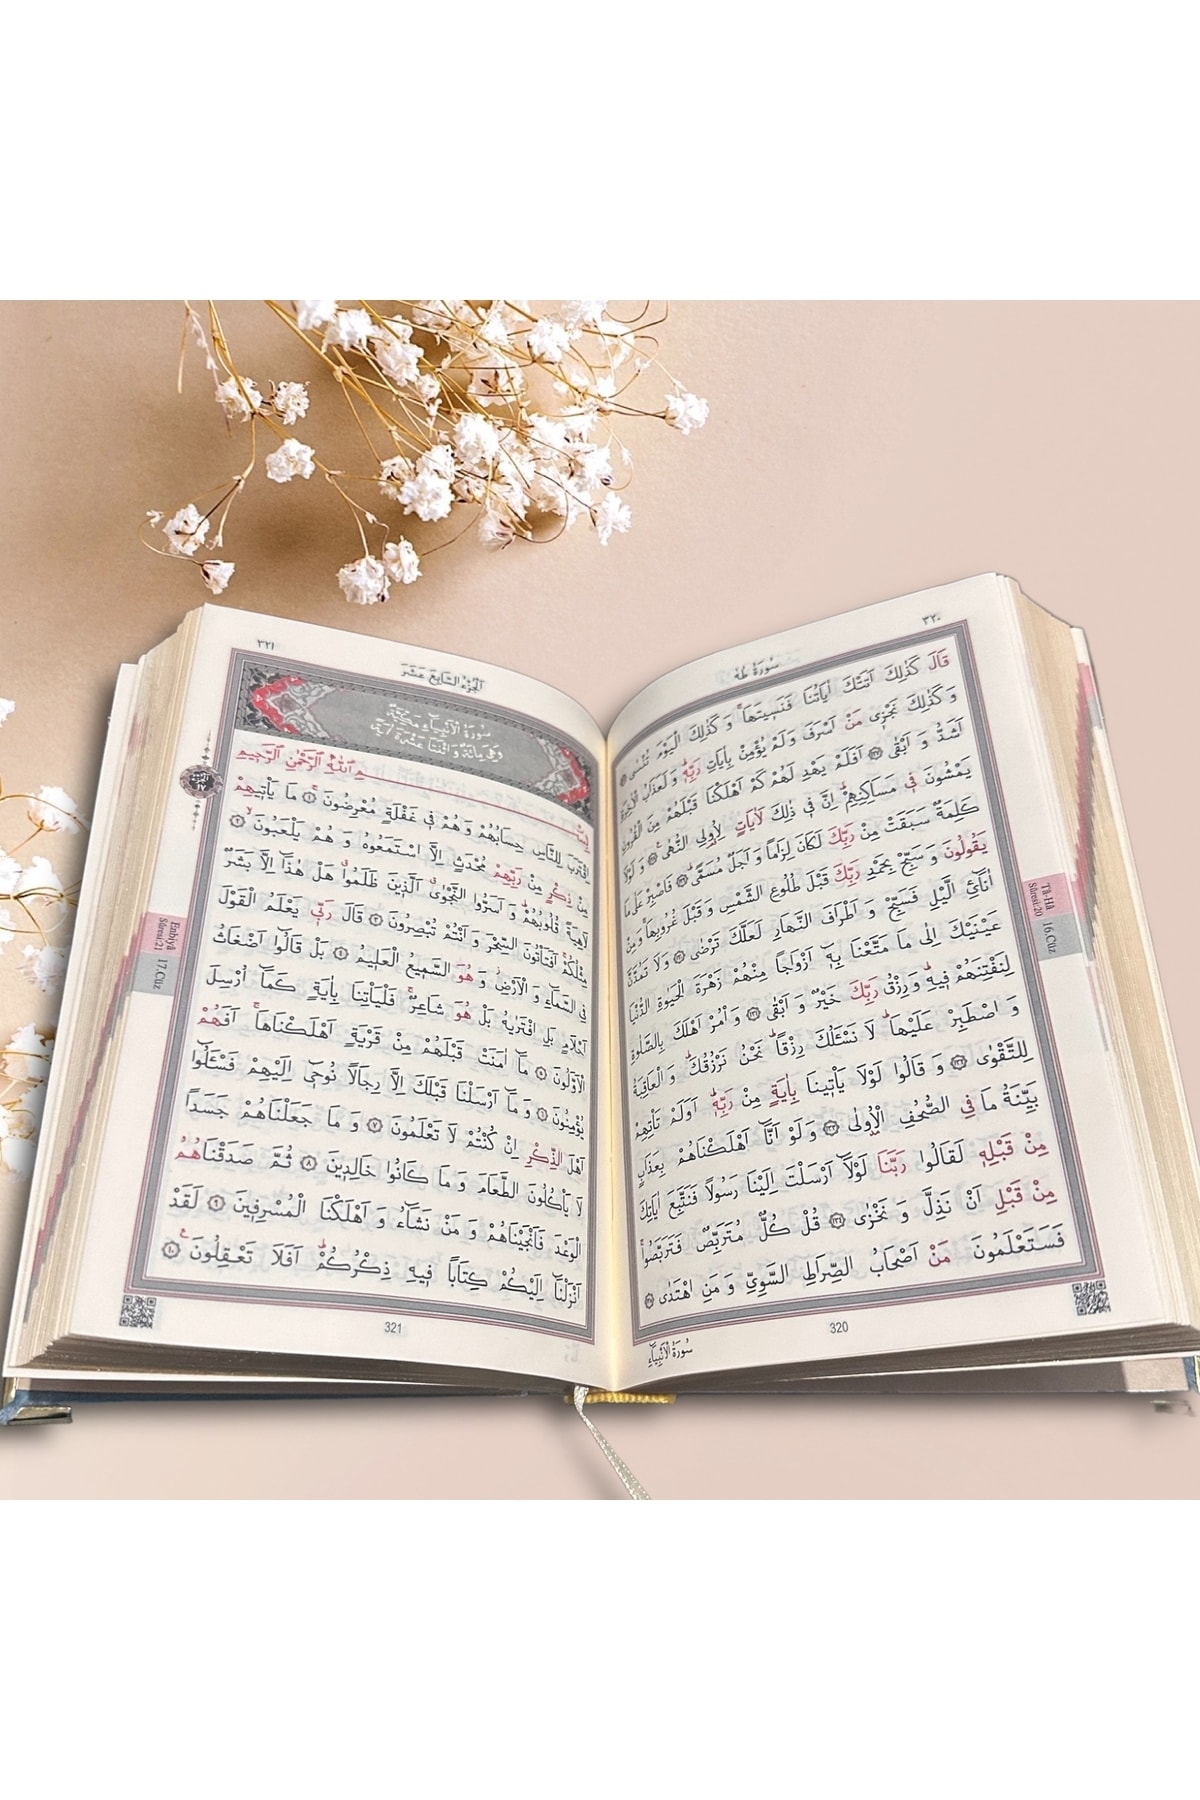 ٣٢٠
سُورَةُ طٰهٰ
قَالَ كَذٰلِكَ اَتَتْكَ اٰيَاتُنَا فَنَس۪يتَهَاۚ وَ كَذٰلِكَ الْيَوْمَ تُنْسٰى ﴿١٢٦﴾
وَ كَذٰلِكَ نَجْز۪ي مَنْ اَسْرَفَ وَلَمْ يُؤْمِنْ بِاٰيَاتِ رَبِّه۪ۜ وَ لَعَذَابُ الْاٰخِرَةِ
اَشَدُّ وَ اَبْقٰى ﴿١٢٧﴾ اَفَلَمْ يَهْدِ لَهُمْ كَمْ اَهْلَكْنَا قَبْلَهُمْ مِنَ الْقُرُونِ
يَمْشُونَ ف۪ي مَسَاكِنِهِمْۜ اِنَّ ف۪ي ذٰلِكَ لَاٰيَاتٍ لِاُولِي النُّهٰى۟ ﴿١٢٨﴾ وَ لَوْلَا
كَلِمَةٌ سَبَقَتْ مِنْ رَبِّكَ لَكَانَ لِزَاماً وَ اَجَلٌ مُسَمًّىۜ ﴿١٢٩﴾ فَاصْبِرْ عَلٰى مَا
يَقُولُونَ وَ سَبِّحْ بِحَمْدِ رَبِّكَ قَبْلَ طُلُوعِ الشَّمْسِ وَ قَبْلَ غُرُوبِهَاۚ وَ مِنْ
اٰنَآئِ الَّيْلِ فَسَبِّحْ وَ اَطْرَافَ النَّهَارِ لَعَلَّكَ تَرْضٰى ﴿١٣٠﴾ وَ لَا تَمُدَّنَّ
عَيْنَيْكَ اِلٰى مَا مَتَّعْنَا بِه۪ٓ اَزْوَاجاً مِنْهُمْ زَهْرَةَ الْحَيٰوةِ الدُّنْيَا
لِنَفْتِنَهُمْ ف۪يهِۜ وَ رِزْقُ رَبِّكَ خَيْرٌ وَ اَبْقٰى ﴿١٣١﴾ وَ أْمُرْ اَهْلَكَ بِالصَّلٰوةِ
وَ اصْطَبِرْ عَلَيْهَاۜ لَا نَسْـَٔلُكَ رِزْقاًۜ نَحْنُ نَرْزُقُكَۜ وَ الْعَاقِبَةُ
لِلتَّقْوٰى ﴿١٣٢﴾ وَ قَالُوا لَوْلَا يَأْت۪ينَا بِاٰيَةٍ مِنْ رَبِّه۪ۜ اَوَلَمْ تَأْتِهِمْ
بَيِّنَةُ مَا فِي الصُّحُفِ الْاُو۫لٰى ﴿١٣٣﴾ وَ لَوْ اَنَّٓا اَهْلَكْنَاهُمْ بِعَذَابٍ
مِنْ قَبْلِه۪ لَقَالُوا رَبَّنَا لَوْلَٓا اَرْسَلْتَ اِلَيْنَا رَسُولاً فَنَتَّبِعَ اٰيَاتِكَ
مِنْ قَبْلِ اَنْ نَذِلَّ وَ نَخْزٰى ﴿١٣٤﴾ قُلْ كُلٌّ مُتَرَبِّصٌ فَتَرَبَّصُواۚ
فَسَتَعْلَمُونَ مَنْ اَصْحَابُ الصِّرَاطِ السَّوِيِّ وَ مَنِ اهْتَدٰى ﴿١٣٥﴾
320
سُورَةُ الْاَنْبِيَاءِ
Tâ-Hâ
Sûresi:20
16.Cüz
٣٢١
اَلْجُزْءُ السَّابِعَ عَشَرَ
سُورَةُ الْاَنْبِيَاءِ مَكِّيَّةٌ
وَهِيَ مِائَةٌ وَ اثْنَتَا عَشْرَةَ اٰيَةً
بِسْمِ اللّٰهِ الرَّحْمٰنِ الرَّح۪يمِ
اِقْتَرَبَ لِلنَّاسِ حِسَابُهُمْ وَ هُمْ ف۪ي غَفْلَةٍ مُعْرِضُونَۚ ﴿١﴾ مَا يَأْت۪يهِمْ
مِنْ ذِكْرٍ مِنْ رَبِّهِمْ مُحْدَثٍ اِلَّا اسْتَمَعُوهُ وَ هُمْ يَلْعَبُونَۙ ﴿٢﴾
لَاهِيَةً قُلُوبُهُمْۜ وَ اَسَرُّوا النَّجْوَىۗ اَلَّذ۪ينَ ظَلَمُواۗ هَلْ هٰذَٓا اِلَّا بَشَرٌ
مِثْلُكُمْۚ اَفَتَأْتُونَ السِّحْرَ وَ اَنْتُمْ تُبْصِرُونَ ﴿٣﴾ قَالَ رَبّ۪ي يَعْلَمُ الْقَوْلَ
فِي السَّمَٓاءِ وَ الْاَرْضِۘ وَ هُوَ السَّم۪يعُ الْعَل۪يمُ ﴿٤﴾ بَلْ قَالُٓوا اَضْغَاثُ
اَحْلَامٍ بَلِ افْتَرٰيهُ بَلْ هُوَ شَاعِرٌۚ فَلْيَأْتِنَا بِاٰيَةٍ كَمَٓا اُرْسِلَ
الْاَوَّلُونَ ﴿٥﴾ مَٓا اٰمَنَتْ قَبْلَهُمْ مِنْ قَرْيَةٍ اَهْلَكْنَاهَاۚ اَفَهُمْ
يُؤْمِنُونَ ﴿٦﴾ وَ مَٓا اَرْسَلْنَا قَبْلَكَ اِلَّا رِجَالاً نُوح۪ٓي اِلَيْهِمْ فَسْـَٔلُٓوا
اَهْلَ الذِّكْرِ اِنْ كُنْتُمْ لَا تَعْلَمُونَ ﴿٧﴾ وَ مَا جَعَلْنَاهُمْ جَسَداً
لَا يَأْكُلُونَ الطَّعَامَ وَ مَا كَانُوا خَالِد۪ينَ ﴿٨﴾ ثُمَّ صَدَقْنَاهُمُ
الْوَعْدَ فَاَنْجَيْنَاهُمْ وَ مَنْ نَشَٓاءُ وَ اَهْلَكْنَا الْمُسْرِف۪ينَ ﴿٩﴾ لَقَدْ
اَنْزَلْنَٓا اِلَيْكُمْ كِتَاباً ف۪يهِ ذِكْرُكُمْۜ اَفَلَا تَعْقِلُونَ۟ ﴿١٠﴾
321
Enbiyâ
Sûresi:21
17.Cüz